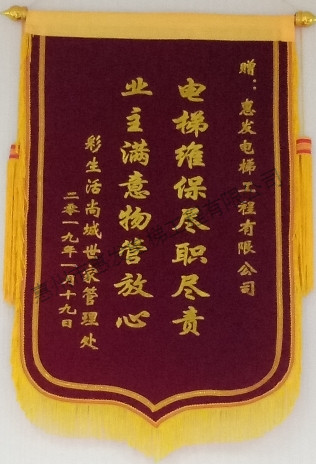 赠：惠发电梯工程有限公司
电梯维保尽职尽责
业主满意物管放心
彩生活尚城世家管理处
二零一九年一月十九日